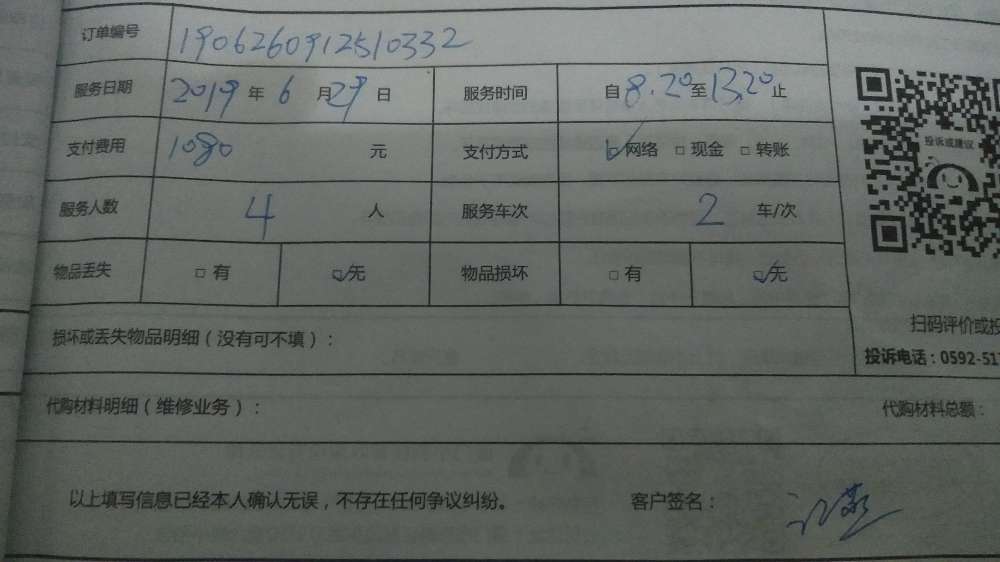 订单编号 1906260912510332
服务日期 2019年 6 月29日 服务时间 自8.20至13.20止
支付费用 1080 元 支付方式 ☑网络 □现金 □转账
投诉或建议
服务人数 4 人 服务车次 2 车/次
物品丢失 □有 ☑无 物品损坏 □有 ☑无
扫码评价或投
损坏或丢失物品明细(没有可不填):
投诉电话:0592-517
代购材料明细(维修业务): 代购材料总额:
以上填写信息已经本人确认无误,不存在任何争议纠纷。 客户签名: